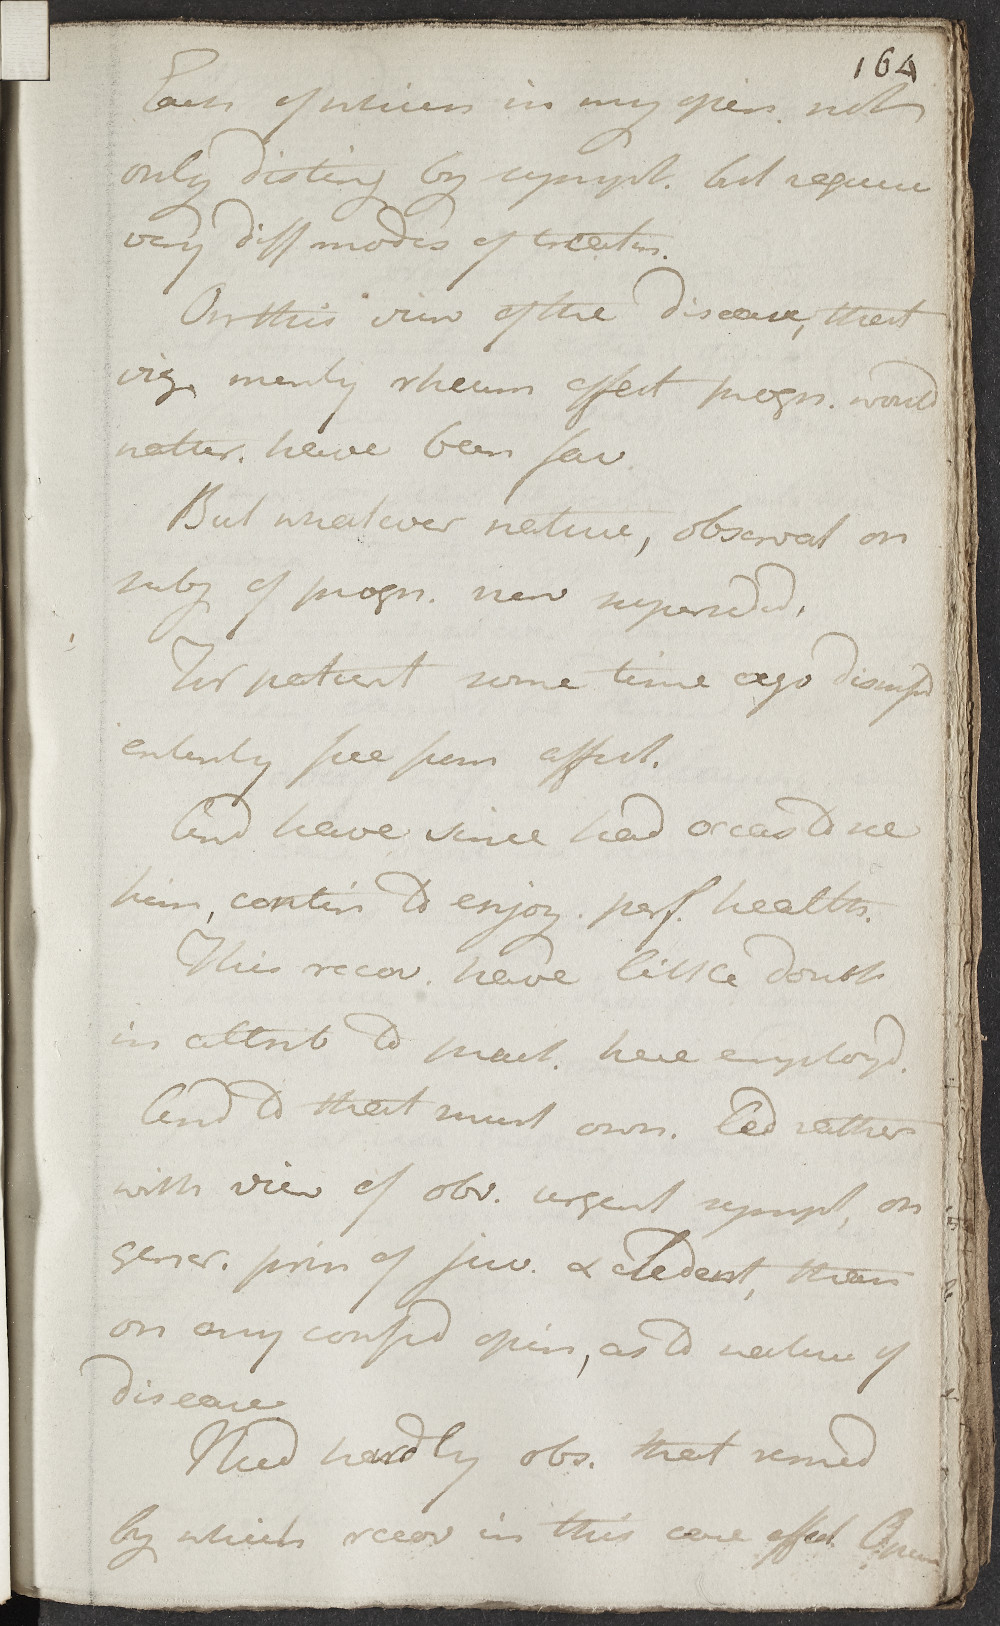 164
Each of which in my opin. not
only disting by sympt. but require
very diff modes of treatm.
On this view of the disease, that
viz merely rheum affect progn. would
natur. have been fav
But whatever nature, observat on
subj of progn. now superseded.
Our patient some time ago dismissd
entirely free from affect.
And have since had occas to see
him, contin to enjoy. perf. health.
This recov. have little doubt
in attrib to pract. here employd.
And to that must own. led rather
with view of obv. urgent sympt, on
gener. prin of juv. & ledent, than
on any confid opin, as to nature of
disease
Need hardly obs. that remed
by which recov in this case effect Opium